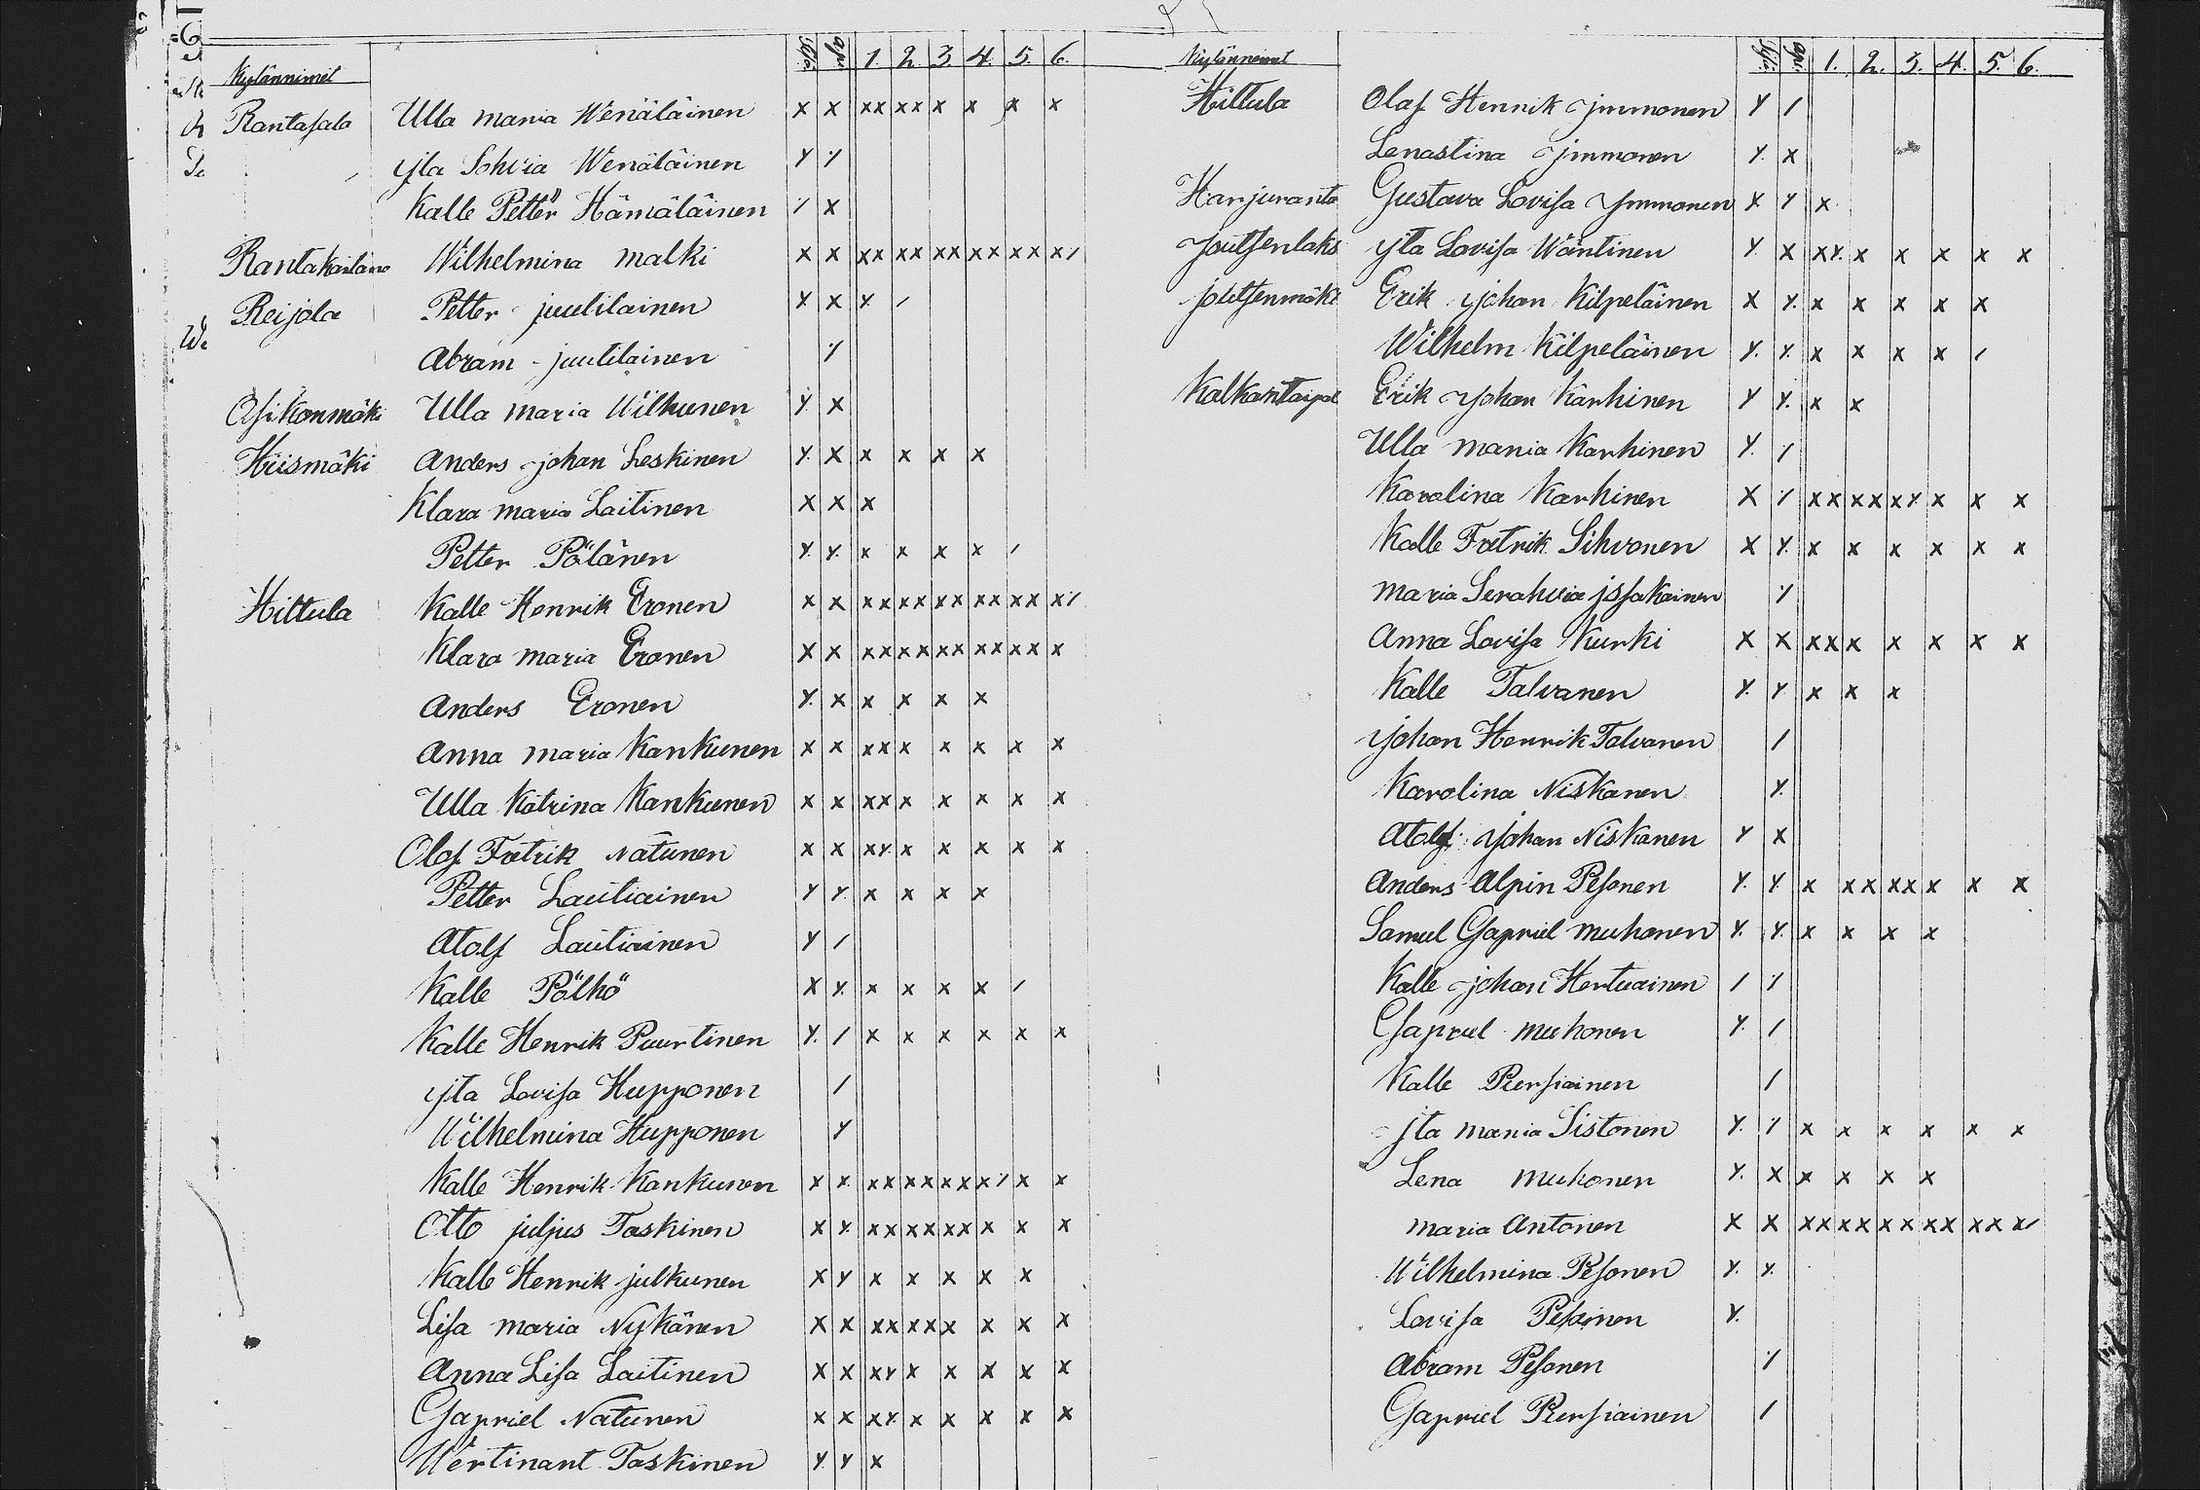 Kylännimet Sisä. apu. 1. 2. 3. 4. 5. 6.
Rantasala Ulla maria Wenäläinen x x xx xx x x x x
yta Sohvia Wenäläinen
Kalle Petter Hämäläinen
Rantakailano Wilhelmina Malki x x xx xx xx xx xx x٪
Reijola Petter juutilainen
Abram juutilainen
Osikonmäki Ulla maria Wilkunen
Hiismäki Anders johan Leskinen x x x x
Klara maria Laitinen x x x
Petter Pölänen x x x x /
Hiltula Kalle Henrik Eronen x x xx xx xx xx xx
Klara maria Eronen x x xx xx xx xx xx x
Anders Eronen x x x x x
Anna maria Kankunen x x xx x x x x x
Ulla Katrina Kankunen x x xx x x x x x
Olof Fretrik Natunen x x xx x x x x x
Petter Lautiainen x x x x
Atolf Lautiainen
Kalle Pölhö x x x x /
Kalle Henrik Puurtinen x x x x x x
yta Lovisa Hupponen /
Wilhelmina Hupponen
Kalle Henrik Kankunen
Otto juljus Taskinen
Kalle Henrik julkunen x x x x x
Lisa maria Nykänen x x xx xx x x x x
Anna Lisa Laitinen x x xx x x x x x
Gapriel Natunen x x xx x x x x x
Wertinant Taskinen
Kylännimet Sisä. apu. 1. 2. 3. 4. 5. 6.
Hiltula Olaf Henrik Immonen
Lenastina Immonen
Harjuranta Gustava Lovisa Immonen
Joutsenlaks yta Lovisa Wäntinen
joutsenmäki Erik Johan Kilpeläinen x x x x x
Wilhelm Kilpeläinen x x x x /
Kalkantaipal Erik Johan Karhinen x x
Ulla maria Karhinen
Karolina Karhinen
Kalle Fretrik Sihvonen x x x x x x
maria Serahvia issakainen
Anna Lovisa Kurki x x xx x x x x x
Kalle Talvanen x x x
Johan Henrik Talvanen /
Karolina Niskanen
Atolf Johan Niskanen
Anders Alpin Pesonen x xx xx x x x
Samul Gapriel muhonen x x x x
Kalle johan Hertuainen
Gapriel muhonen
Kalle Piersiainen /
Ita maria Sistonen x x x x x x
Lena muhonen x x x x x
maria Antonen x x xx xx xx xx xx
Wilhelmina Pesonen
Lovisa Pesonen
Abram Pesonen
Gapriel Piersiainen /